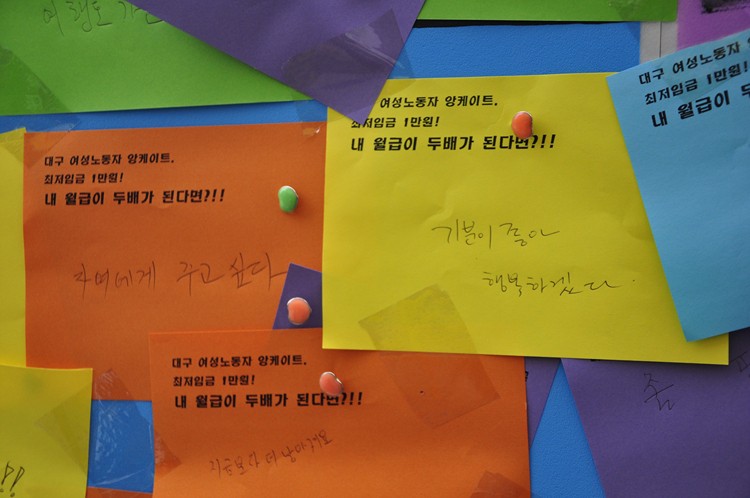 대구 여성노동자 앙케이트.
최저임금 1만원!
내 월급이 두배가 된다면?!!
구고 싶다
여성노동자 앙케이트.
최저임금 1만원!
내 월급이 두배가 된다면?!!
기분이 좋아
행복하겠다.
대구 여성노동자 앙케
최저임금 1만원!
내 월급이 두
대구 여성노동자 앙케이트.
최저임금 1만원!
내 월급이 두배가 된다면?!!
좀